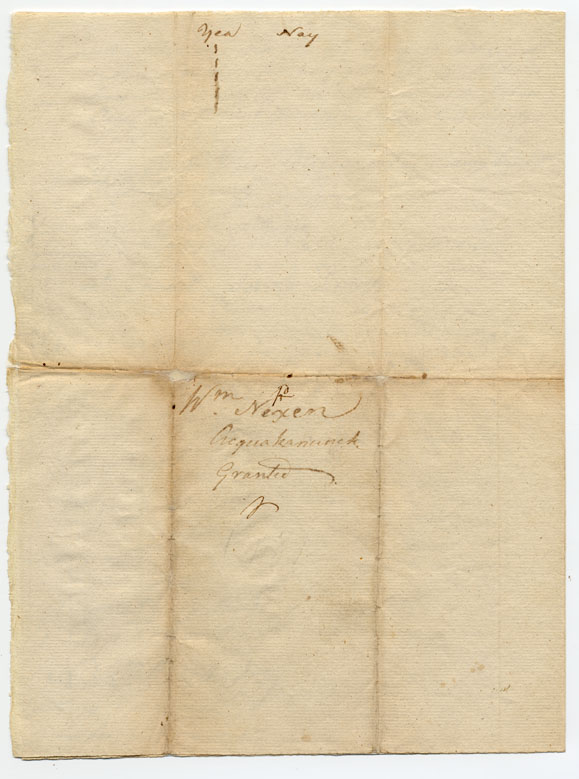 Yea Nay
Wm. Nexen
Acquakanunck
Granted